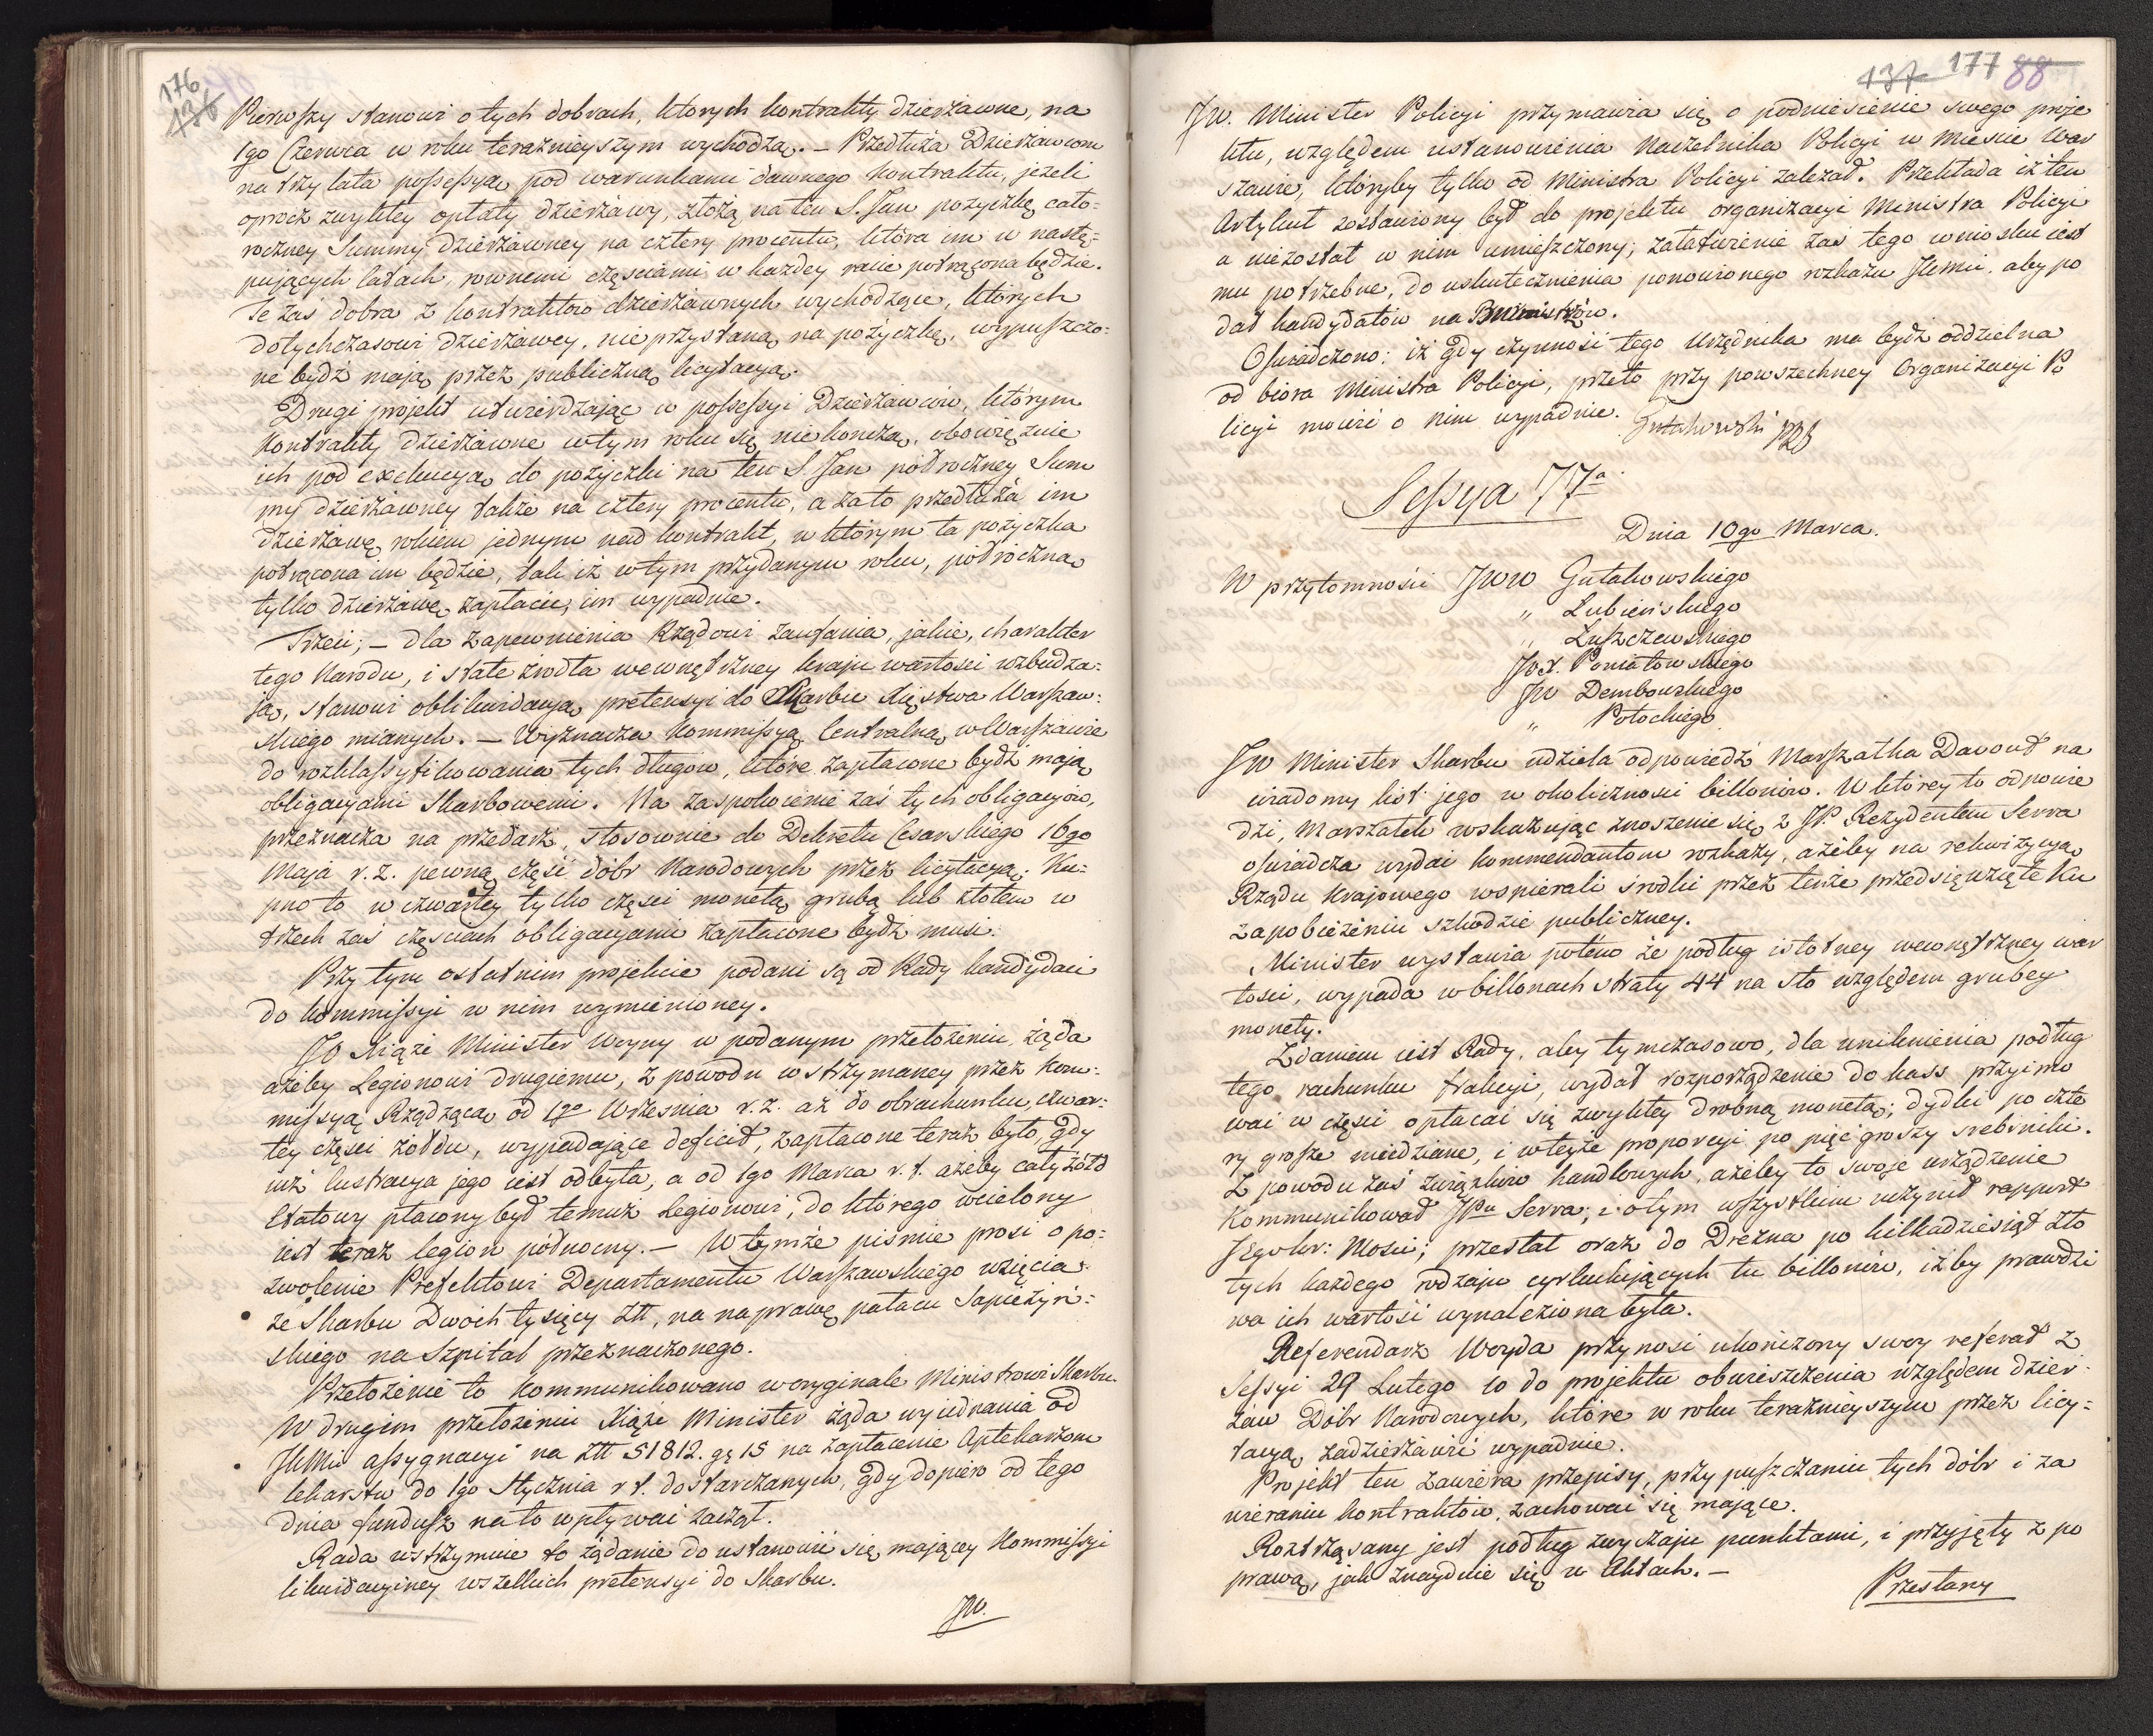 176
136
Pierwszy stanowi o tych dobrach, ktorych kontrakty dzierżawne, na
1go Czerwca w roku teraźnieyszym wychodzą. – Przedłuża Dzierżawcom
na trzy lata possessyą pod warunkami dawnego kontraktu, jeżeli
oprocz zwykłey opłaty dzierżawy, złożą na ten S. Jan pozyczkę cało=
roczney Summy dzierżawney na cztery procentu, która im w nastę=
pujących latach, rownemi częsciami w każdey racie potrącona będzie.
Te zaś dobra z kontraktow dzierżawnych wychodzące, których
dotychczasowi dzierżawcy, nie przystaną na pożyczkę, wypuszczo=
ne bydź mają przez publiczną licytacyą.
Drugi projekt utwierdzając w possessyi Dzierżawców, którym
Kontrakty dzierżawne w tym roku się nie kończą, obowiezuie
ich pod exekucyą do pożyczki na ten S. Jan półroczney Sum
my dzierżawney także na cztery procentu, a za to przedłuża im
dzierżawę rokiem jednym nad kontrakt, w którym ta pożyczka
potrącona im będzie, tak iż w tym przydanym roku, półroczną
tylko dzierżawę zapłacić im wypadnie.
Trzeci; – dla zapewnienia Rządowi zaufania, jakie, charakter
tego Narodu, i stałe źrodła wewnętrzney kraju wartosci wzbudza=
ją, stanowi oblikwidacyą pretensyi do Skarbu Xięstwa Warszaw=
skiego mianych. – Wyznacza Kommissyą Centralną w Warszawie
do rozklassyfikowania tych długow, które zapłacone bydź mają
obligacyami Skarbowemi. Na zaspokoienie zaś tych obligacyów,
przeznacza na przedarz, stosownie do Dekretu Cesarskiego 16go
Maja r. z. pewną część dóbr Narodowych przez licytacyą. Ku=
pno to w czwartey tylko części monetą grubą lub złotem w
trzech zaś częsciach obligacyami zapłacone bydź musi.
Przy tym ostatnim projekcie podani są od Rady kandydaci
do kommissyi w nim wymienioney.
JO Xiąże Minister Woyny w podanym przełożeniu żąda
ażeby Legionowi drugiemu, z powodu wstrzymaney przez Kom=
missyą Rządzącą od 1go Września r. z. aż do obrachunku, czwar=
tey części żołdu, wypadające deficit, zapłacone teraz było, gdy
iuż lustracya jego iest odbyta, a od 1go Marca r. t. ażeby cały żołd
Etatowy płacony był temuż Legionowi, do którego wcielony
iest teraz legion północny. – W tymże piśmie prosi o po=
zwolenie Prefektowi Departamentu Warszawskiego wzięcia
ze Skarbu Dwoch tysięcy Złł, na naprawę pałacu Sapieżyń=
skiego na Szpital przeznaczonego.
Przełożenie to kommunikowano w oryginale Ministrowi Skarbu.
W drugim przełożeniu Xiąże Minister żąda wyiednania od
JKMci assygnacyi na Złł 51812. gę 15 na zapłacenie Aptekarzom
lekarstw do 1go Stycznia r t. dostarczanych, gdy dopiero od tego
dnia fundusz na to wpływać zaczął.
Rada wstrzymuie to żądanie do ustanowić się mającey Kommissyi
likwidacyiney wszelkich pretensyi do Skarbu.
JW.
137 177 88
JW. Minister Policyi przymawia się o podniesienie swego proje
ktu, względem ustanowienia Naczelnika Policyi w Miescie War
szawie, któryby tylko od Ministra Policyi zależał. Przekłada iż ten
Artykuł zostawiony był do projektu organizacyi Ministra Policyi
a niezostał w nim umieszczony; załatwienie zaś tego wniosku iest
mu potrzebne, do uskutecznienia ponowionego rozkazu JKMci. aby po
dał kandydatów na
Oświadczono: iż gdy czynność tego Urzędnika ma bydź oddzielna
od biora Ministra Policyi, przeto przy powszechney Organizacyi Po
licyi mowić o nim wypadnie. Gutakowski
Sessya 77a
Dnia 10go Marca.
W przytomności JWW Gutakowskiego
„ Łubieńskiego
„ Łuszczewskiego
JOX. Poniatowskiego
JW Dembowskiego
„ Potockiego
JW Minister Skarbu udziela odpowiedź Marszałka Davout na
wiadomy list jego w okoliczności billonów. W którey to odpowie
dzi, Marszałek wskazując znoszenie się z JP. Rezydentem Serra
oświadcza wydać kommendantom rozkazy, ażeby na rekwizycyą
Rządu Krajowego wspierali środki przez tenże przedsięwzięte ku
zapobieżeniu szkodzie publiczney.
Minister wystawia potem że podług istotney wewnętrzney war
tości, wypada w billonach straty 44 na sto względem grubey
monety.
Zdaniem iest Rady, aby tymczasowo, dla uniknienia podług
tego rachunku frakcyi, wydał rozporządzenie do kass przyimo
wać w części opłacać się zwykłey drobną monetą; dydki po czte
ry grosze miedziane, i w teyże proporcyi po pięć groszy srebrniki.
Z powodu zaś związków handlowych, ażeby to swoje urządzenie
Kommunikował JPu Serra; i o tym wszystkim uczynił rapport
JEgo Kr: Mości; przesłał oraz do Drezna po kilkadziesiąt Zło
tych każdego rodzaju cyrkulujących tu billonów, iżby prawdzi
wa ich wartość wynaleziona była.
Referendarz Woyda przynosi ukończony swoy referat z
Sessyi 29 Lutego co do projektu obwieszczenia względem dzier
żaw Dóbr Narodowych, które w roku teraźnieyszym przez licy=
tacyą zadzierżawić wypadnie.
Projekt ten zawiera przepisy, przy puszczaniu tych dóbr i za
wieraniu kontraktów, zachować się mające.
Roztrząsany jest podług zwyczaju punktami, i przyjęty z po
prawą, jak znayduie się w Aktach. –
Przesłany